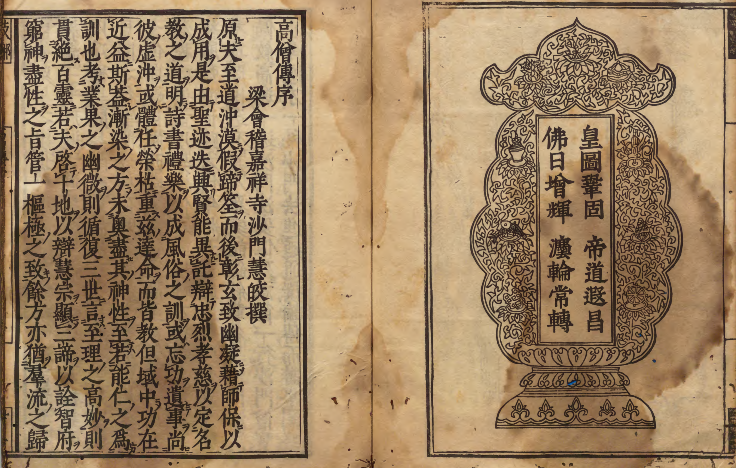 皇圖鞏固 帝道遐昌
佛日增輝 灋輪常轉
高僧傳序
梁會稽嘉祥寺沙門慧皎撰
原夫至道沖漠假蹄筌而後彰玄致幽凝藉師保以
成用是由聖迹迭興賢能異託辯忠烈孝慈以定名
教之道明詩書禮樂以成風俗之訓或忘功遺事尚
彼虛沖或體任榮枯重茲達命而皆教但域中功在
近益斯蓋漸染之方未奧盡其神性至若能仁之爲
訓也考業果之幽微則循復三世言至理之高妙則
貫絕百靈若夫啓十地以辯慧宗顯二諦以詮智府
窮神盡性之旨管一樞極之致餘方亦猶羣流之歸